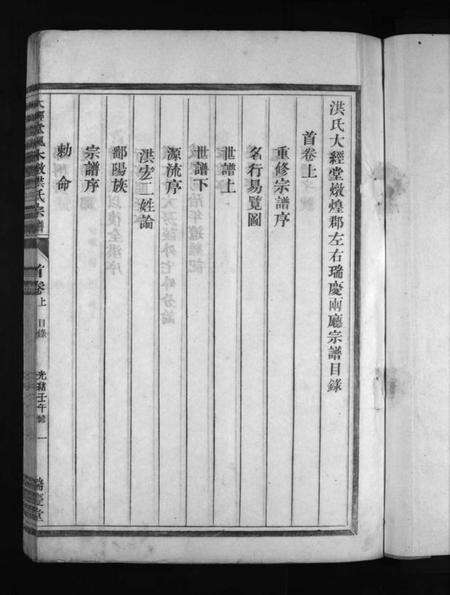 洪氏大經堂燉煌郡左右瑞慶兩廳宗譜目錄
首卷上
重修宗譜序
名行易覽圖
世譜上
世譜下
源流序
洪宏二姓論
鄱陽族
宗譜序
勅命
洪氏宗譜
首卷上 目錄
光緒壬午 一